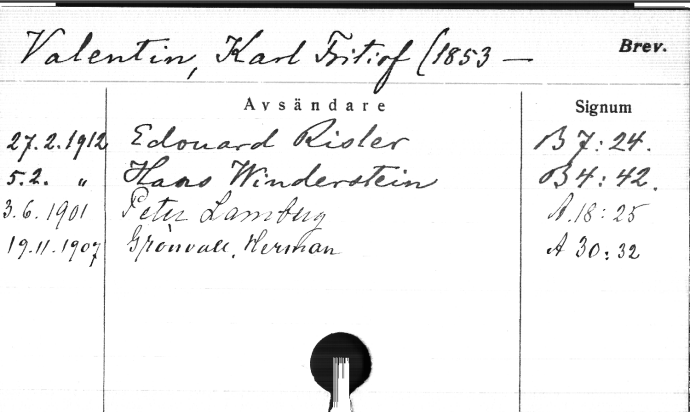 Valentin, Karl Fritiof (1853 — Brev.
Avsändare Signum
27.2.1912 Edouard Risler B 7:24.
5.2. " Hans Winderstein B 4:42.
3.6.1901 Peter Lamberg A.18:25
19.11.1907 Grönvall, Herman A 30:32